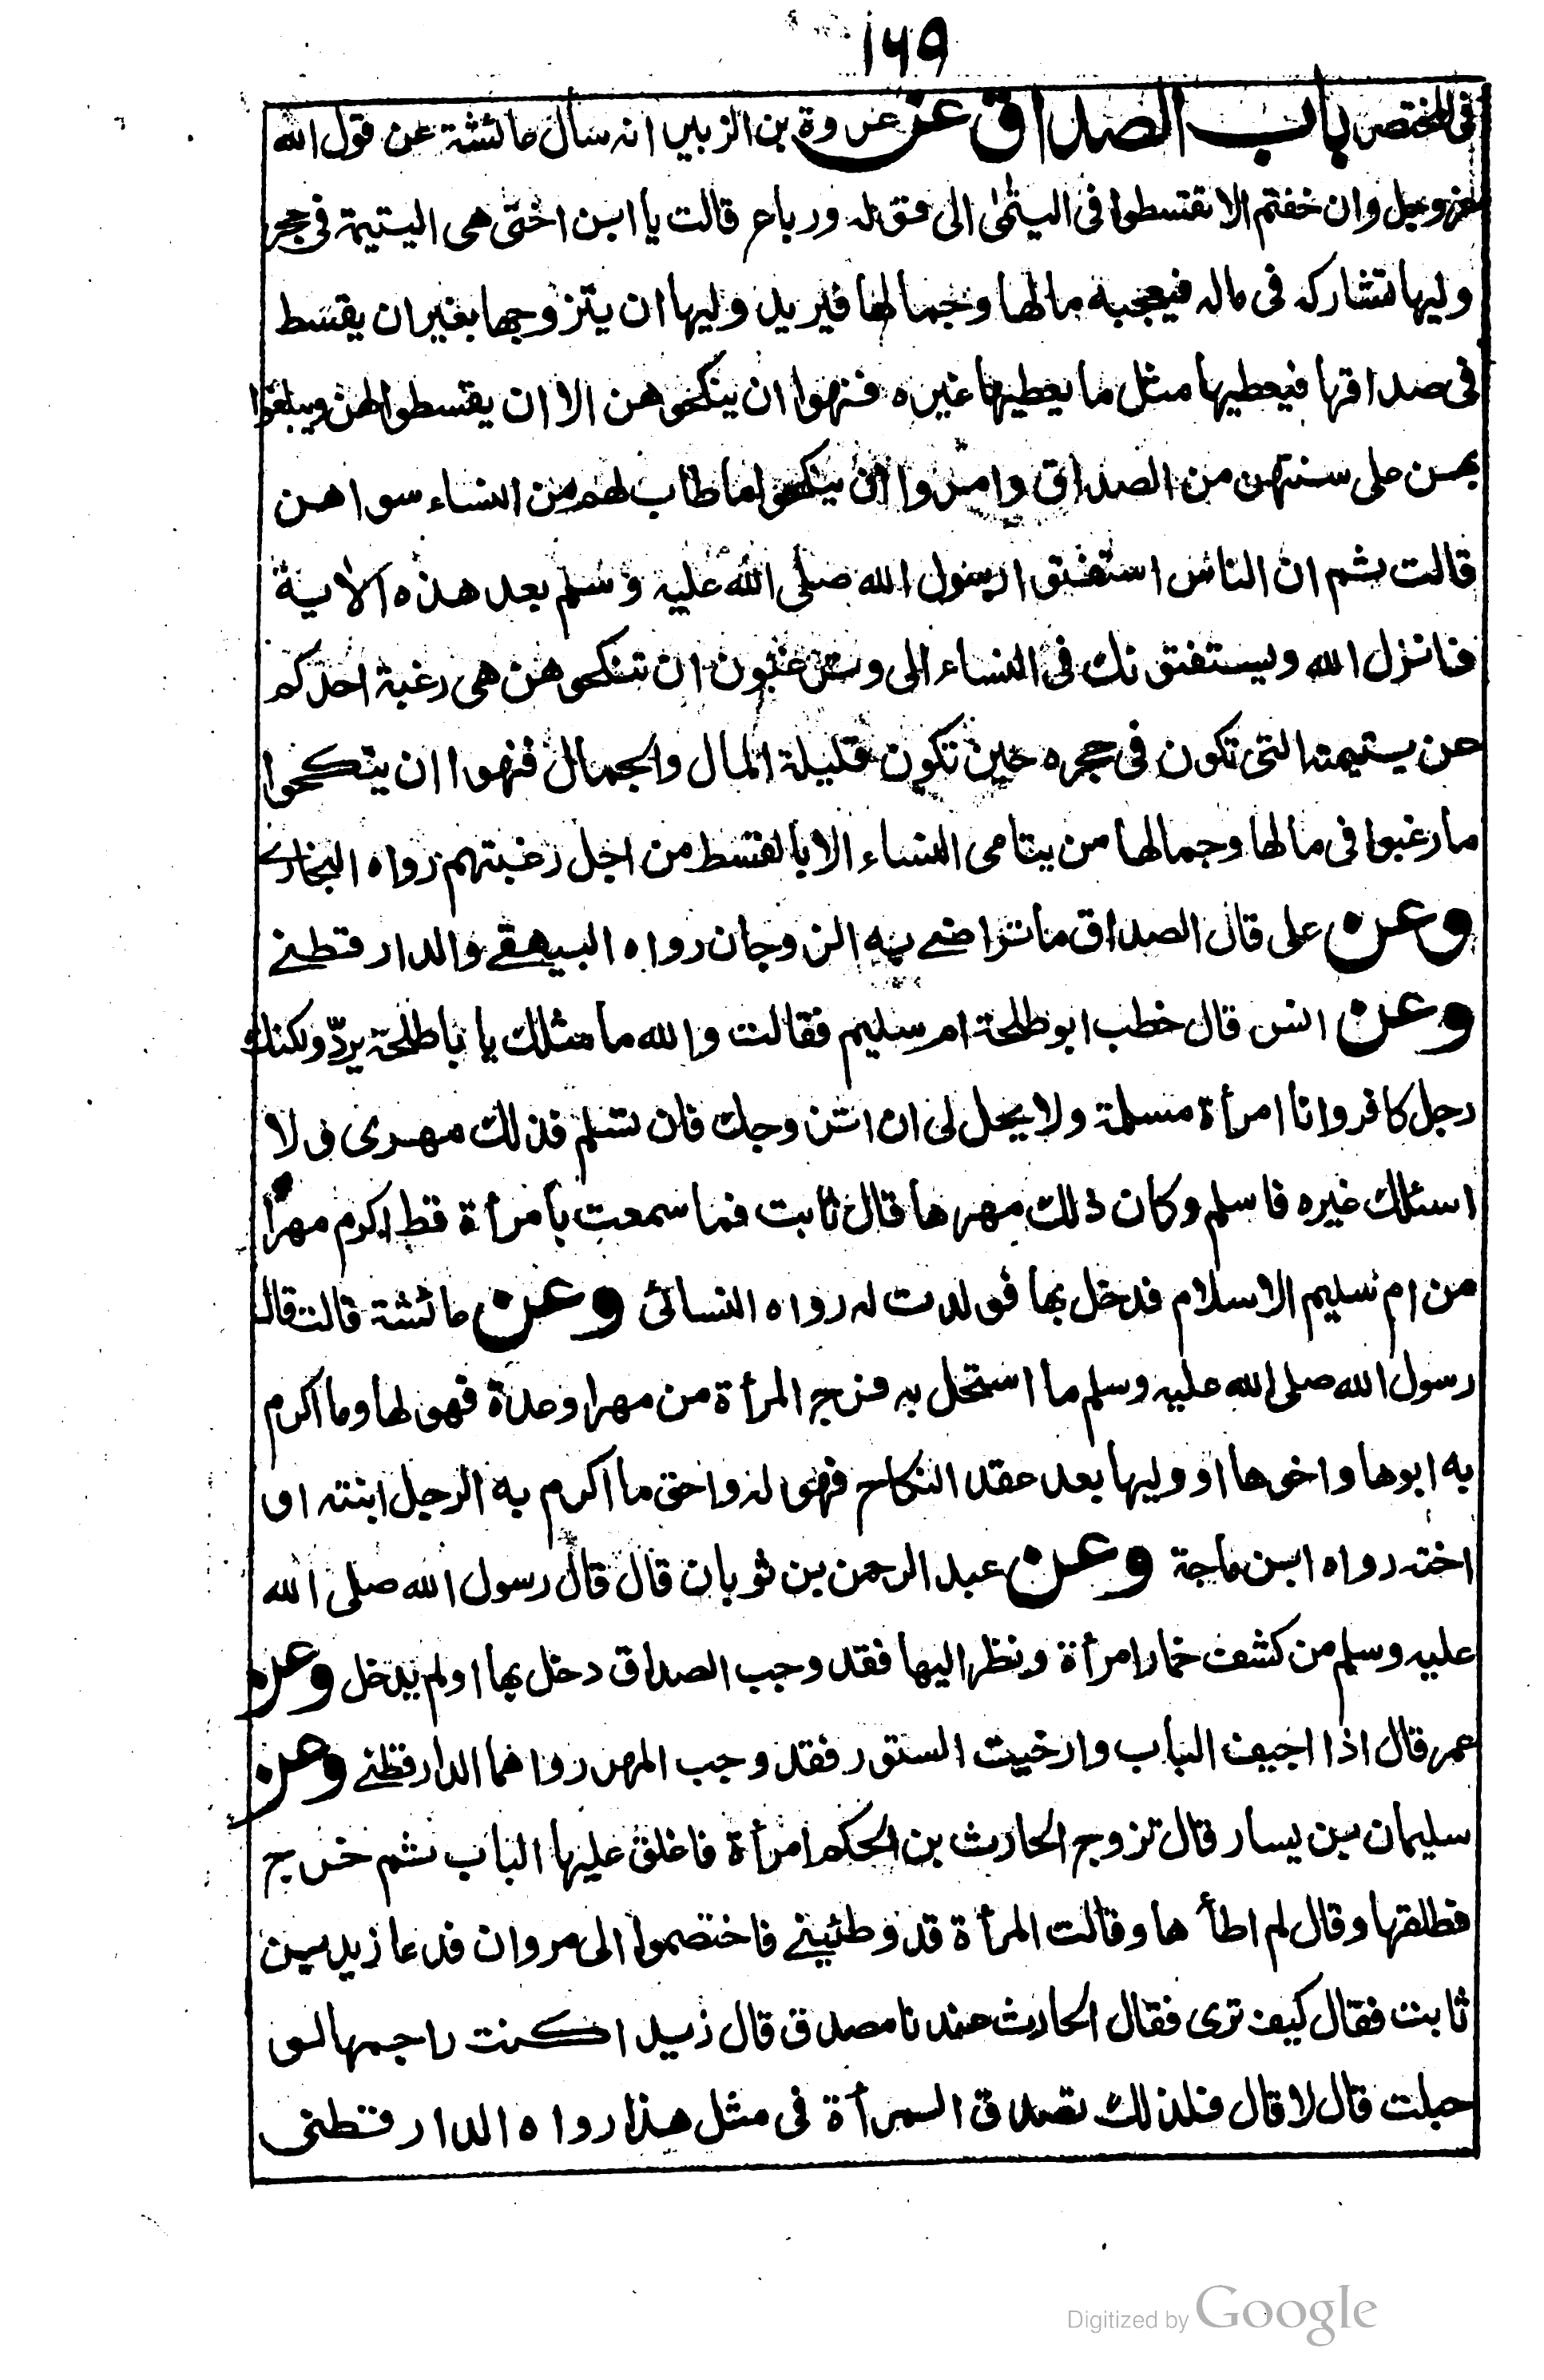 ١٦٩
فى المختصر باب الصداق عن عروة بن الزبير انه سأل عائشة عن قول الله
عزوجل وان خفتم الا تقتسطوا فى اليتمىٰ الى قوله ورباع قالت يا ابن اختى هى اليتيمة فى حجر
وليها تشاركه فى ماله فيعجبه مالها وجمالها فيريد وليها ان يتزوجها بغير ان يقسط
فى صداقها فيعطيها مثل ما يعطيها غيره فنهوا ان ينكحوهن الا ان يقسطوا لهن ويبلغوا
بهن على سنتهن من الصداق وامروا ان ينكحوا ما طاب لهم من النساء سواهن
قالت ثم ان الناس استفتوا رسول الله صلى الله عليه وسلم بعد هذه الاية
فانزل الله ويستفتونك فى النساء الى وترغبون ان تنكحوهن هى رغبة احدكم
عن يتيمته التى تكون فى حجره حين تكون قليلة المال والجمال فنهوا ان ينكحوا
ما رغبوا فى مالها وجمالها من يتامى النساء الا بالقسط من اجل رغبتهم رواه البخارى
وعن على قال الصداق ما تراضى به الزوجان رواه البيهقے والدارقطنے
وعن انس قال خطب ابو طلحة ام سليم فقالت والله ما مثلك يا با طلحة يردّ ولكنك
رجل كافر وانا امرأة مسلمة ولا يحل لى ان اتزوجك فان تسلم فذلك مهرى و لا
اسئلك غيره فاسلم وكان ذلك مهرها قال ثابت فما سمعت بامرأة قط اكرم مهرًا
من ام سليم الاسلام فدخل بها فولدت له رواه النسائى وعن عائشة قالت قال
رسول الله صلى الله عليه وسلم ما استحل به فرج المرأة من مهر او عدة فهو لها وما اكرم
به ابوها واخوها او وليها بعد عقد النكاح فهو له واحق ما اكرم به الرجل ابنته او
اخته رواه ابن ماجة وعن عبد الرحمن بن ثوبان قال قال رسول الله صلى الله
عليه وسلم من كشف خمار امرأة ونظر اليها فقد وجب الصداق دخل بها او لم يدخل وعن
عمر قال اذا اجيف الباب وارخيت الستور فقد وجب المهر رواهما الدارقطنے وعن
سليمان بن يسار قال تزوج الحارث بن الحكم امرأة فاغلق عليها الباب ثم خرج
فطلقها وقال لم اطأ ها وقالت المرأة قد وطئينے فاختصموا الى مروان فدعا زيد بن
ثابت فقال كيف ترى فقال الحارث عندنا مصدق قال زيد اكنت راجمها لو
حبلت قال لا قال فلذلك تصدق المرأة فى مثل هذا رواه الدارقطنى
Digitized by Google